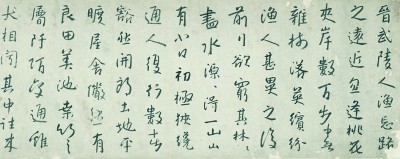 晉武陵人漁忘路
之遠近忽逢桃花
夾岸數百步中無
雜樹落英繽紛
漁人甚異之復
前行欲窮其林〻
盡水源得一山山
有小口初極狹纔
通人復行數十步
豁然開朗土地平
曠屋舍儼然有
良田美池桑竹之
屬阡陌交通雞
犬相聞其中往來